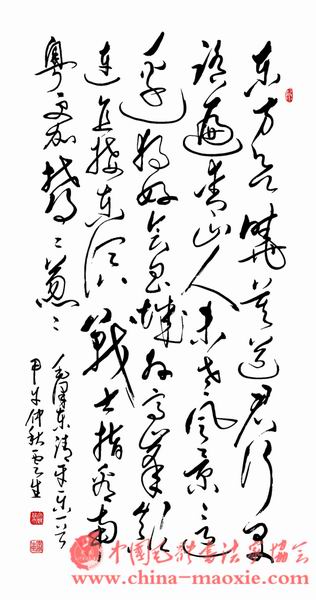 东方欲晓莫道君行早
踏遍青山人未老风景这
边独好会昌城外高峰颠
连直接东溟戰士指看南
粤更加郁々葱々
毛泽东清平乐会昌
甲午仲秋
中国毛体书法家协会
www.china-maoxie.com